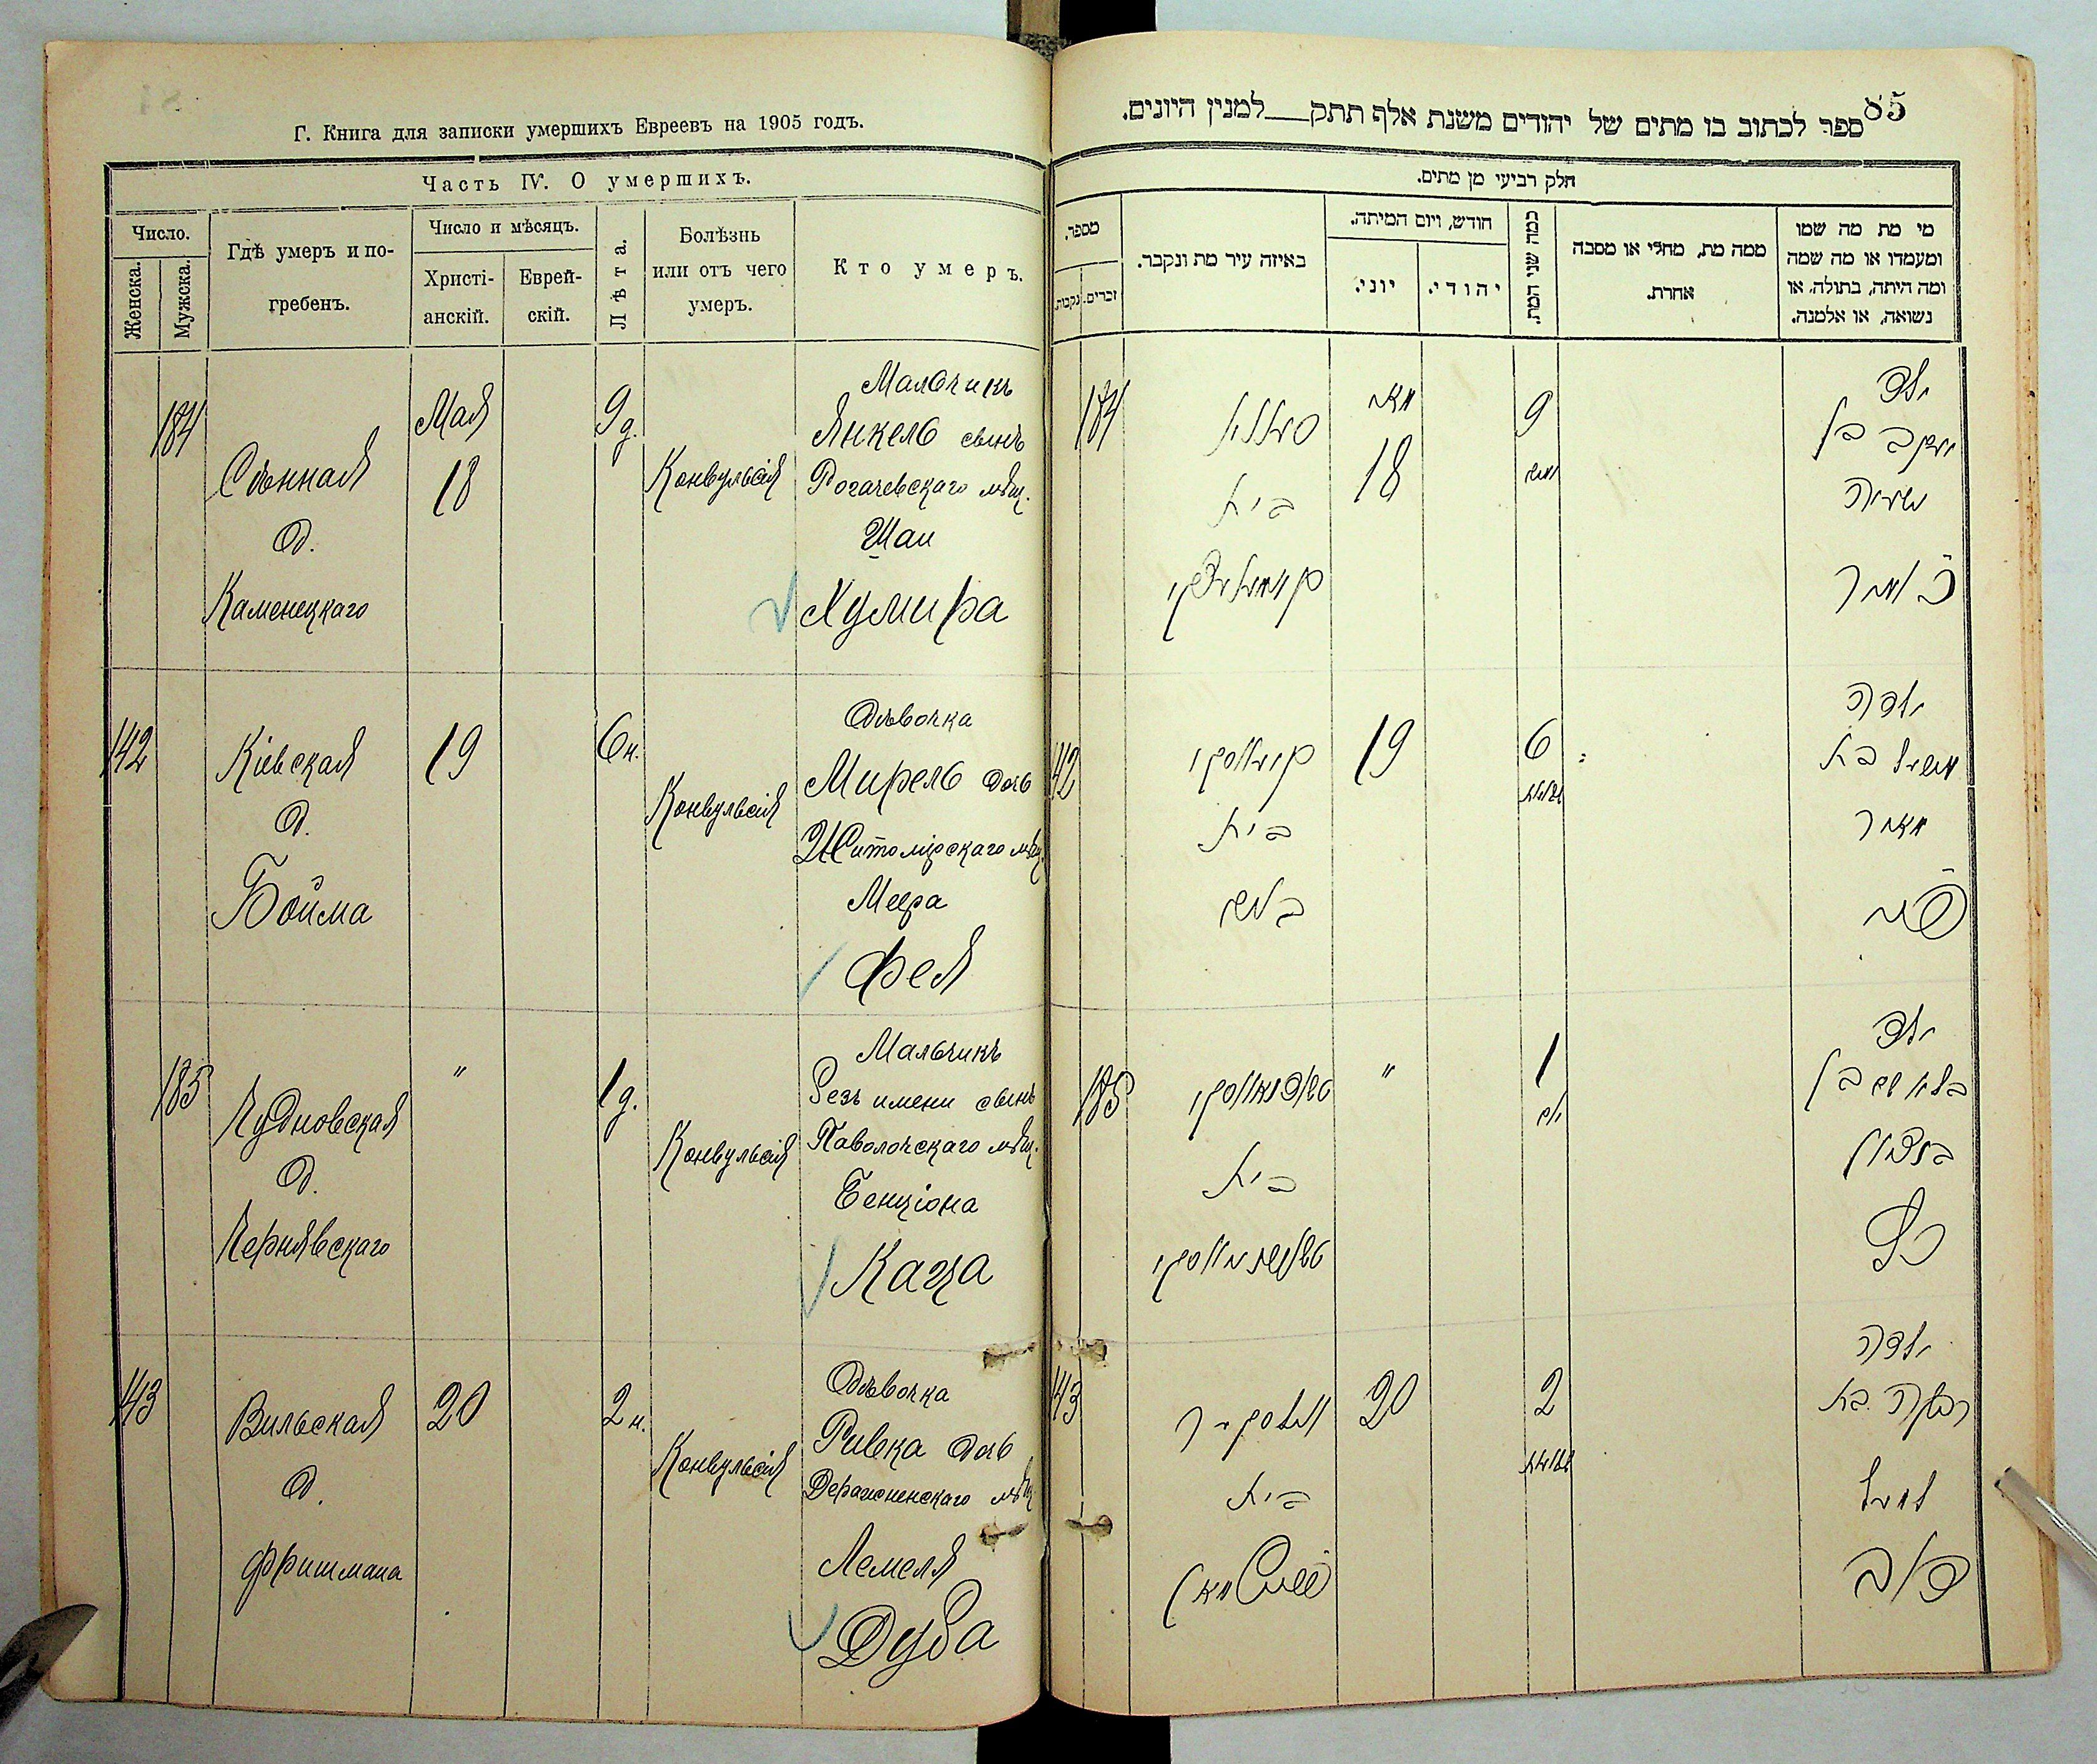 Г. Книга для записки умершихъ Евреевъ на 1905 годъ.
Часть IV. О умершихъ.
Число.
Женска.
Мужска.
Гдѣ умеръ и по-
гребенъ.
Число и мѣсяцъ.
Христі-
анскій.
Еврей-
скій.
Лѣта.
Болѣзнь
или отъ чего
умеръ.
Кто умеръ.
184
Сѣнная
д.
Каменецкаго
Мая
18
9 д.
Конвульсія
Мальчикъ
Янкель сынъ
Рогачевскаго мѣщ.
Шаи
Хумира
142
Кіевская
д.
Бойма
19
6 н.
Конвульсія
Дѣвочка
Мирель дочь
Житомірскаго мѣщ.
Меера
Фея
185
Чудновская
д.
Чернявскаго
"
1 д.
Конвульсія
Мальчикъ
Безъ имени сынъ
Паволочскаго мѣщ.
Бенціона
Каца
143
Вильская
д.
Фришмана
20
2 н.
Конвульсія
Дѣвочка
Ривка дочь
мѣщ.
Лемеля
Дуба
85
ספר לכתוב בו מתים של יהודים משנת אלף תתק___למנין היונים.
חלק רביעי מן מתים.
מספר.
זכרים.
נקבות.
באיזה עיר מת ונקבר.
חודש, ויום המיתה.
יוני.
יהודי.
כמה שני המת.
ממה מת, מחלי או מסבה
אחרת.
מי מת מה שמו
ומעמדו או מה שמה
ומה היתה, בתולה, או
נשואה, או אלמנה.
184
בית
מאי
18
9
ילד
יעקב בן
ישעיה
142
בית
19
6
ילדה
מירל בת
מאיר
185
בית
"
1
יום
ילד
בלי שם בן
בנציון
כץ
143
בית
פרישמאן
20
2
ילדה
רבקה בת
דוב